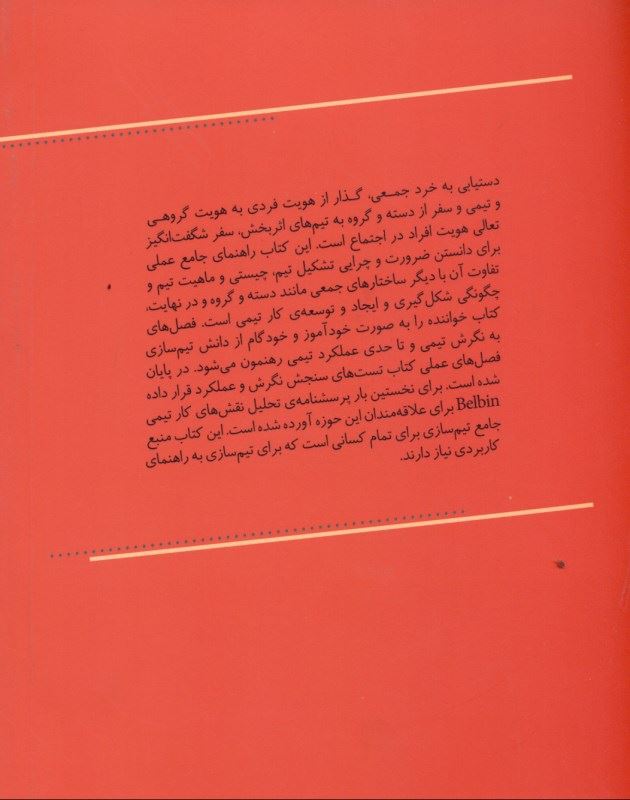 دستیابی به خرد جمعی، گذار از هویت فردی به هویت گروهی
و تیمی و سفر از دسته و گروه به تیم‌های اثربخش، سفر شگفت‌انگیز
تعالی هویت افراد در اجتماع است. این کتاب راهنمای جامع عملی
برای دانستن ضرورت و چرایی تشکیل تیم، چیستی و ماهیت تیم و
تفاوت آن با دیگر ساختارهای جمعی مانند دسته و گروه و در نهایت،
چگونگی شکل‌گیری و ایجاد و توسعه‌ی کار تیمی است. فصل‌های
کتاب خواننده را به صورت خودآموز و خودگام از دانش تیم‌سازی
به نگرش تیمی و تا حدی عملکرد تیمی رهنمون می‌شود. در پایان
فصل‌های عملی کتاب تست‌های سنجش نگرش و عملکرد قرار داده
شده است. برای نخستین بار پرسشنامه‌ی تحلیل نقش‌های کار تیمی
Belbin برای علاقه‌مندان این حوزه آورده شده است. این کتاب منبع
جامع تیم‌سازی برای تمام کسانی است که برای تیم‌سازی به راهنمای
کاربردی نیاز دارند.